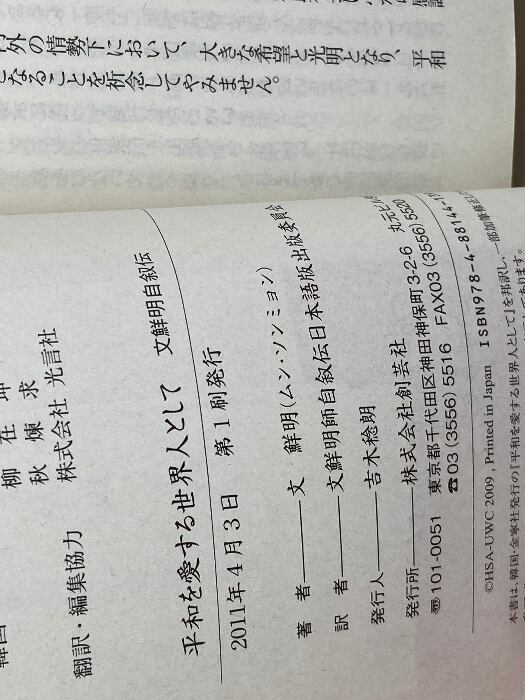 外の情勢下において、大きな希望と光明となり、平和
となることを祈念してやみません。
柳 在 坤
秋 煉 求
株式会社 光言社
翻訳・編集協力
平和を愛する世界人として 文鮮明自叙伝
2011年4月3日 第1刷発行
著 者――文 鮮明(ムン・ソンミョン)
訳 者――文鮮明師自叙伝日本語版出版委員会
発行人――吉木稔朗
発行所――株式会社創芸社
〒101-0051 東京都千代田区神田神保町3-2-6 丸元ビル
☎03(3556)5516 FAX03(3556)5520
©HSA-UWC 2009, Printed in Japan ISBN978-4-88144-
本書は、韓国・金寧社発行の『平和を愛する世界人として』を邦訳し、一部加筆修正